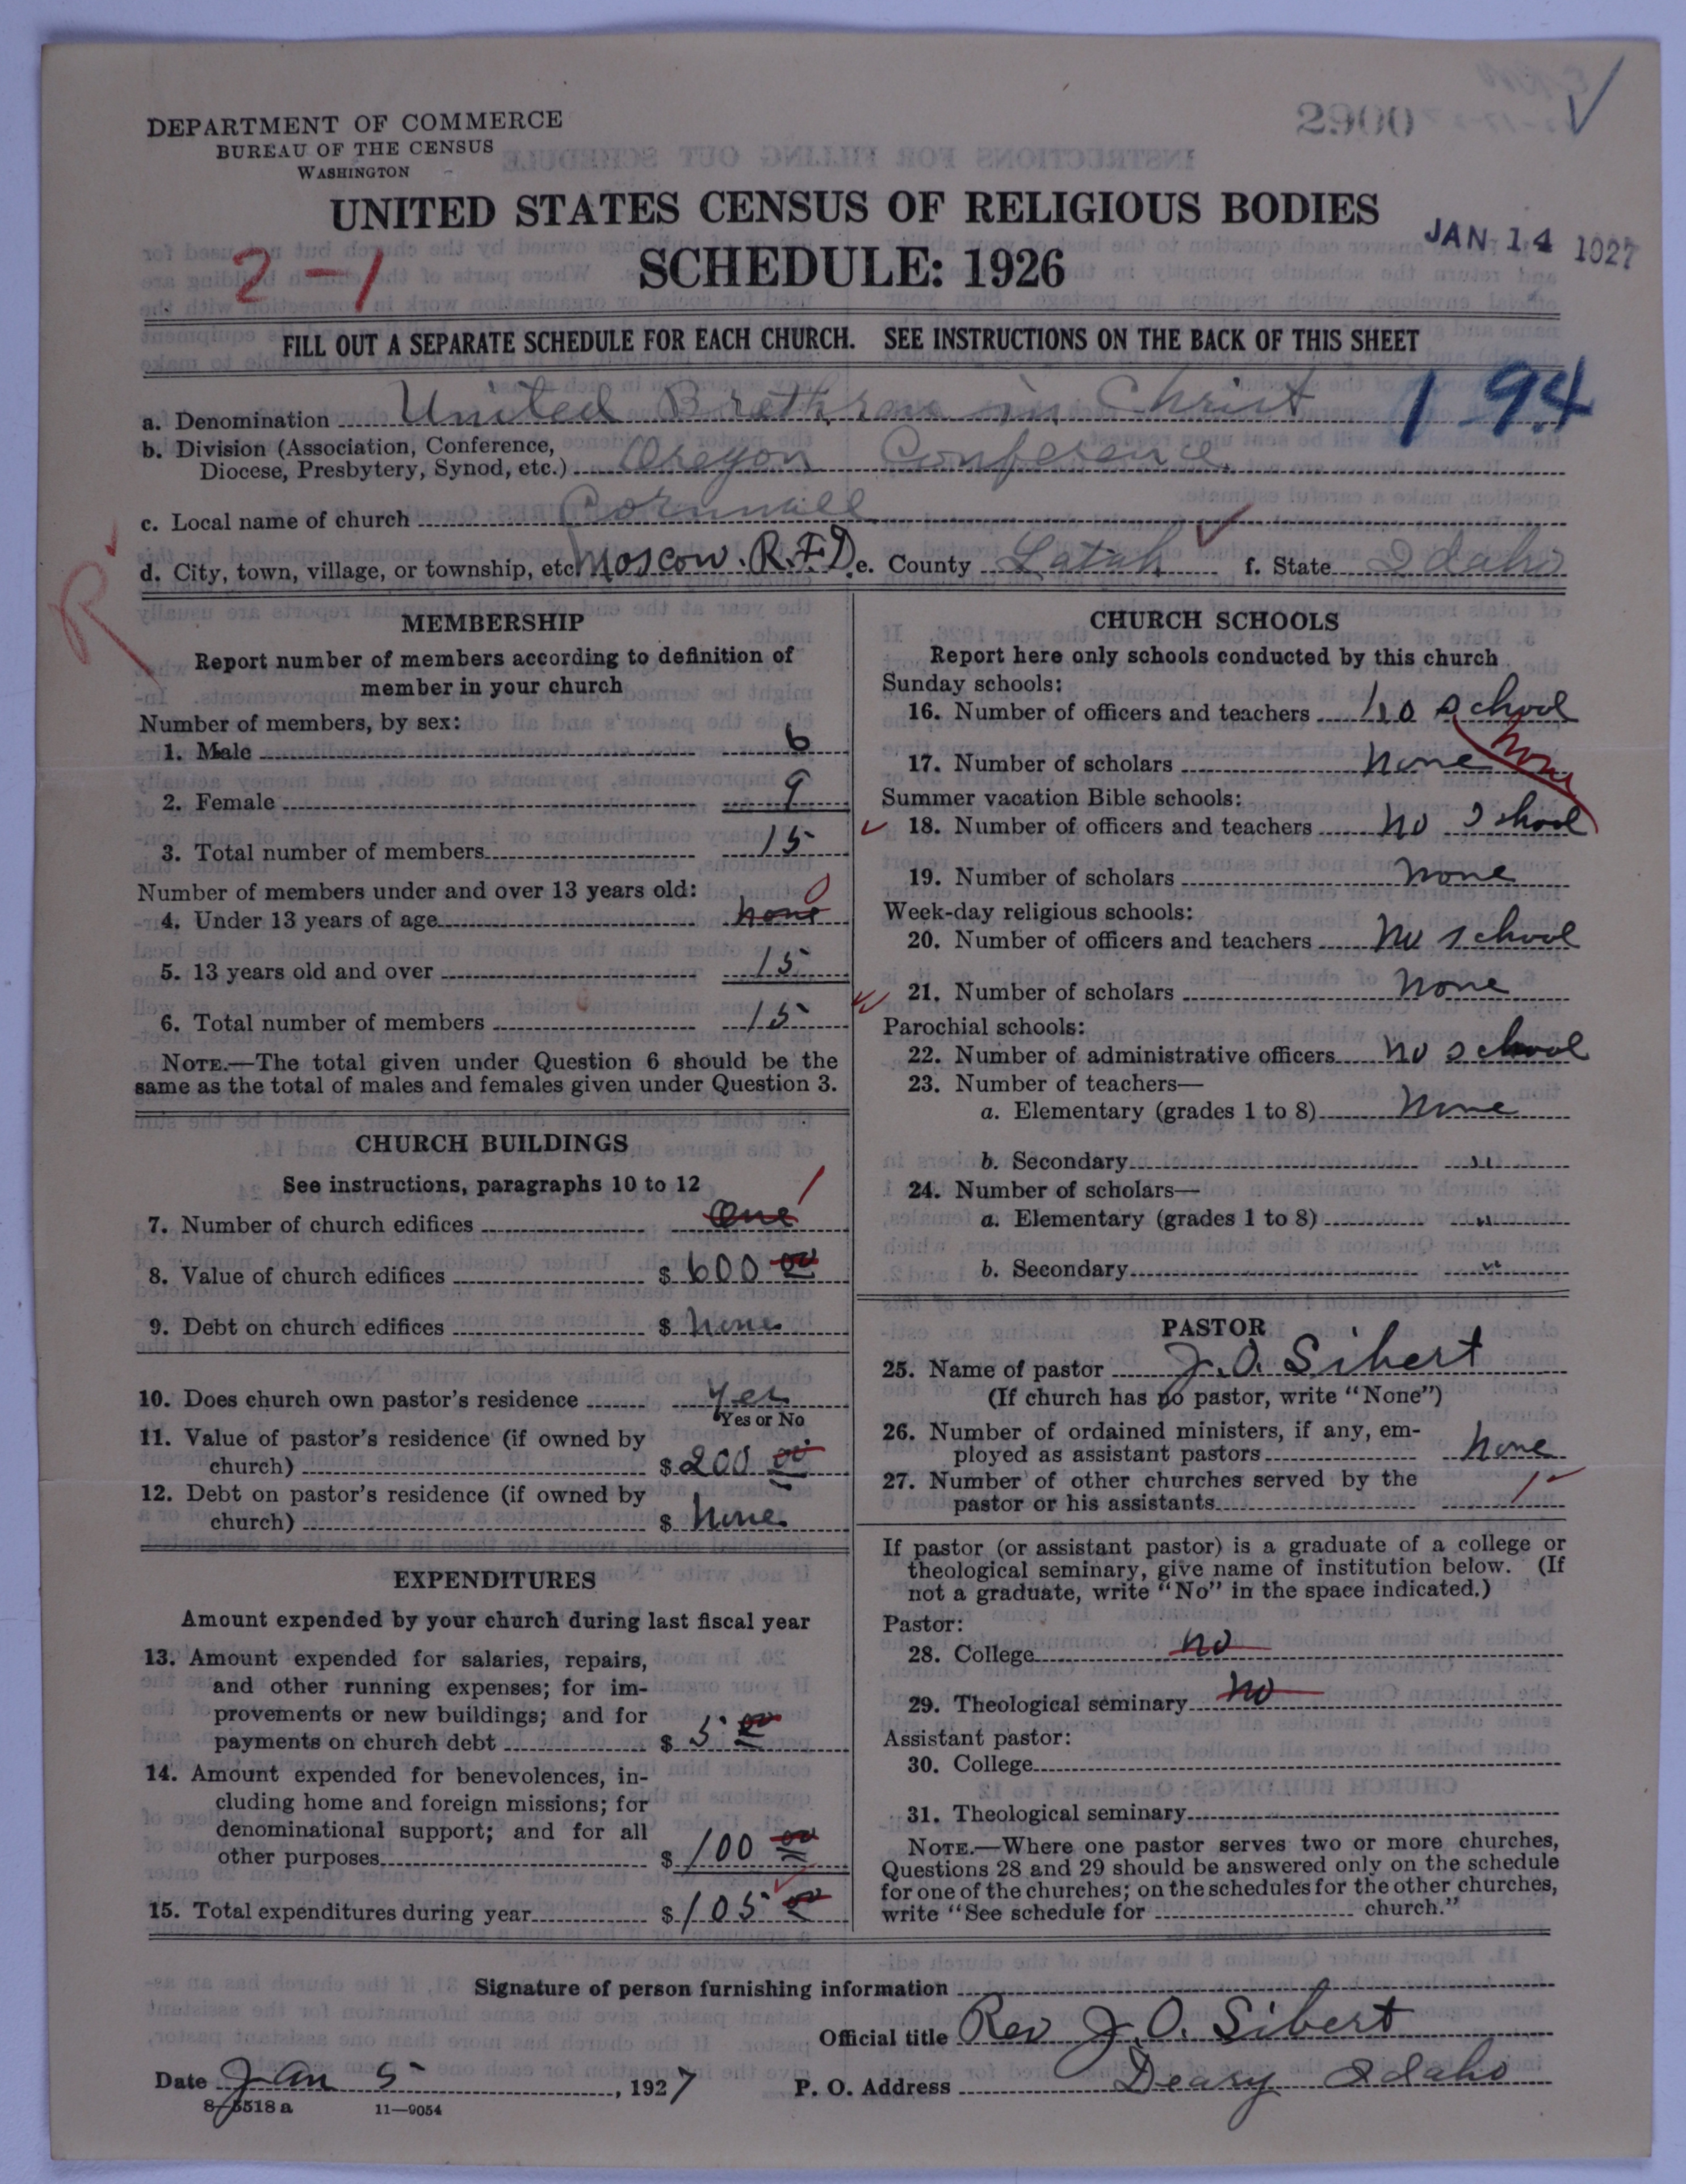 DEPARTMENT OF COMMERCE
BUREAU OF THE CENSUS
WASHINGTON
2900
UNITED STATES CENSUS OF RELIGIOUS BODIES
SCHEDULE: 1926
JAN 14 1927
2-1
FILL OUT A SEPARATE SCHEDULE FOR EACH CHURCH. SEE INSTRUCTIONS ON THE BACK OF THIS SHEET
1 94
a. Denomination United Brethren in Christ
b. Division (Association, Conference,
Diocese, Presbytery, Synod, etc.) Oregon Conference
c. Local name of church Cornwall
d. City, town, village, or township, etc. Moscow. R.F.D. e. County Latah f. State Idaho
R
MEMBERSHIP
Report number of members according to definition of
member in your church
Number of members, by sex:
1. Male 6
2. Female 9
3. Total number of members 15
Number of members under and over 13 years old:
4. Under 13 years of age none 0
5. 13 years old and over 15
6. Total number of members 15
NOTE.—The total given under Question 6 should be the
same as the total of males and females given under Question 3.
CHURCH BUILDINGS
See instructions, paragraphs 10 to 12
7. Number of church edifices One 1
8. Value of church edifices $ 600 00
9. Debt on church edifices $ None
10. Does church own pastor's residence Yes
Yes or No
11. Value of pastor's residence (if owned by
church) $ 200 00
12. Debt on pastor's residence (if owned by
church) $ None
EXPENDITURES
Amount expended by your church during last fiscal year
13. Amount expended for salaries, repairs,
and other running expenses; for im-
provements or new buildings; and for
payments on church debt $ 5 00
14. Amount expended for benevolences, in-
cluding home and foreign missions; for
denominational support; and for all
other purposes $ 100 00
15. Total expenditures during year $ 105 00
CHURCH SCHOOLS
Report here only schools conducted by this church
Sunday schools:
16. Number of officers and teachers no school
17. Number of scholars none
none
Summer vacation Bible schools:
18. Number of officers and teachers no School
19. Number of scholars none
Week-day religious schools:
20. Number of officers and teachers no school
21. Number of scholars none
Parochial schools:
22. Number of administrative officers no school
23. Number of teachers—
a. Elementary (grades 1 to 8) None
b. Secondary "
24. Number of scholars—
a. Elementary (grades 1 to 8) "
b. Secondary "
PASTOR
25. Name of pastor J. O. Sibert
(If church has no pastor, write "None")
26. Number of ordained ministers, if any, em-
ployed as assistant pastors none
27. Number of other churches served by the
pastor or his assistants 1
If pastor (or assistant pastor) is a graduate of a college or
theological seminary, give name of institution below. (If
not a graduate, write "No" in the space indicated.)
Pastor:
28. College no
29. Theological seminary no
Assistant pastor:
30. College
31. Theological seminary
NOTE.—Where one pastor serves two or more churches,
Questions 28 and 29 should be answered only on the schedule
for one of the churches; on the schedules for the other churches,
write "See schedule for church."
Signature of person furnishing information
Official title Rev J. O. Sibert
Date Jan 5, 1927 P. O. Address Deary Idaho
8—5518 a 11—9054